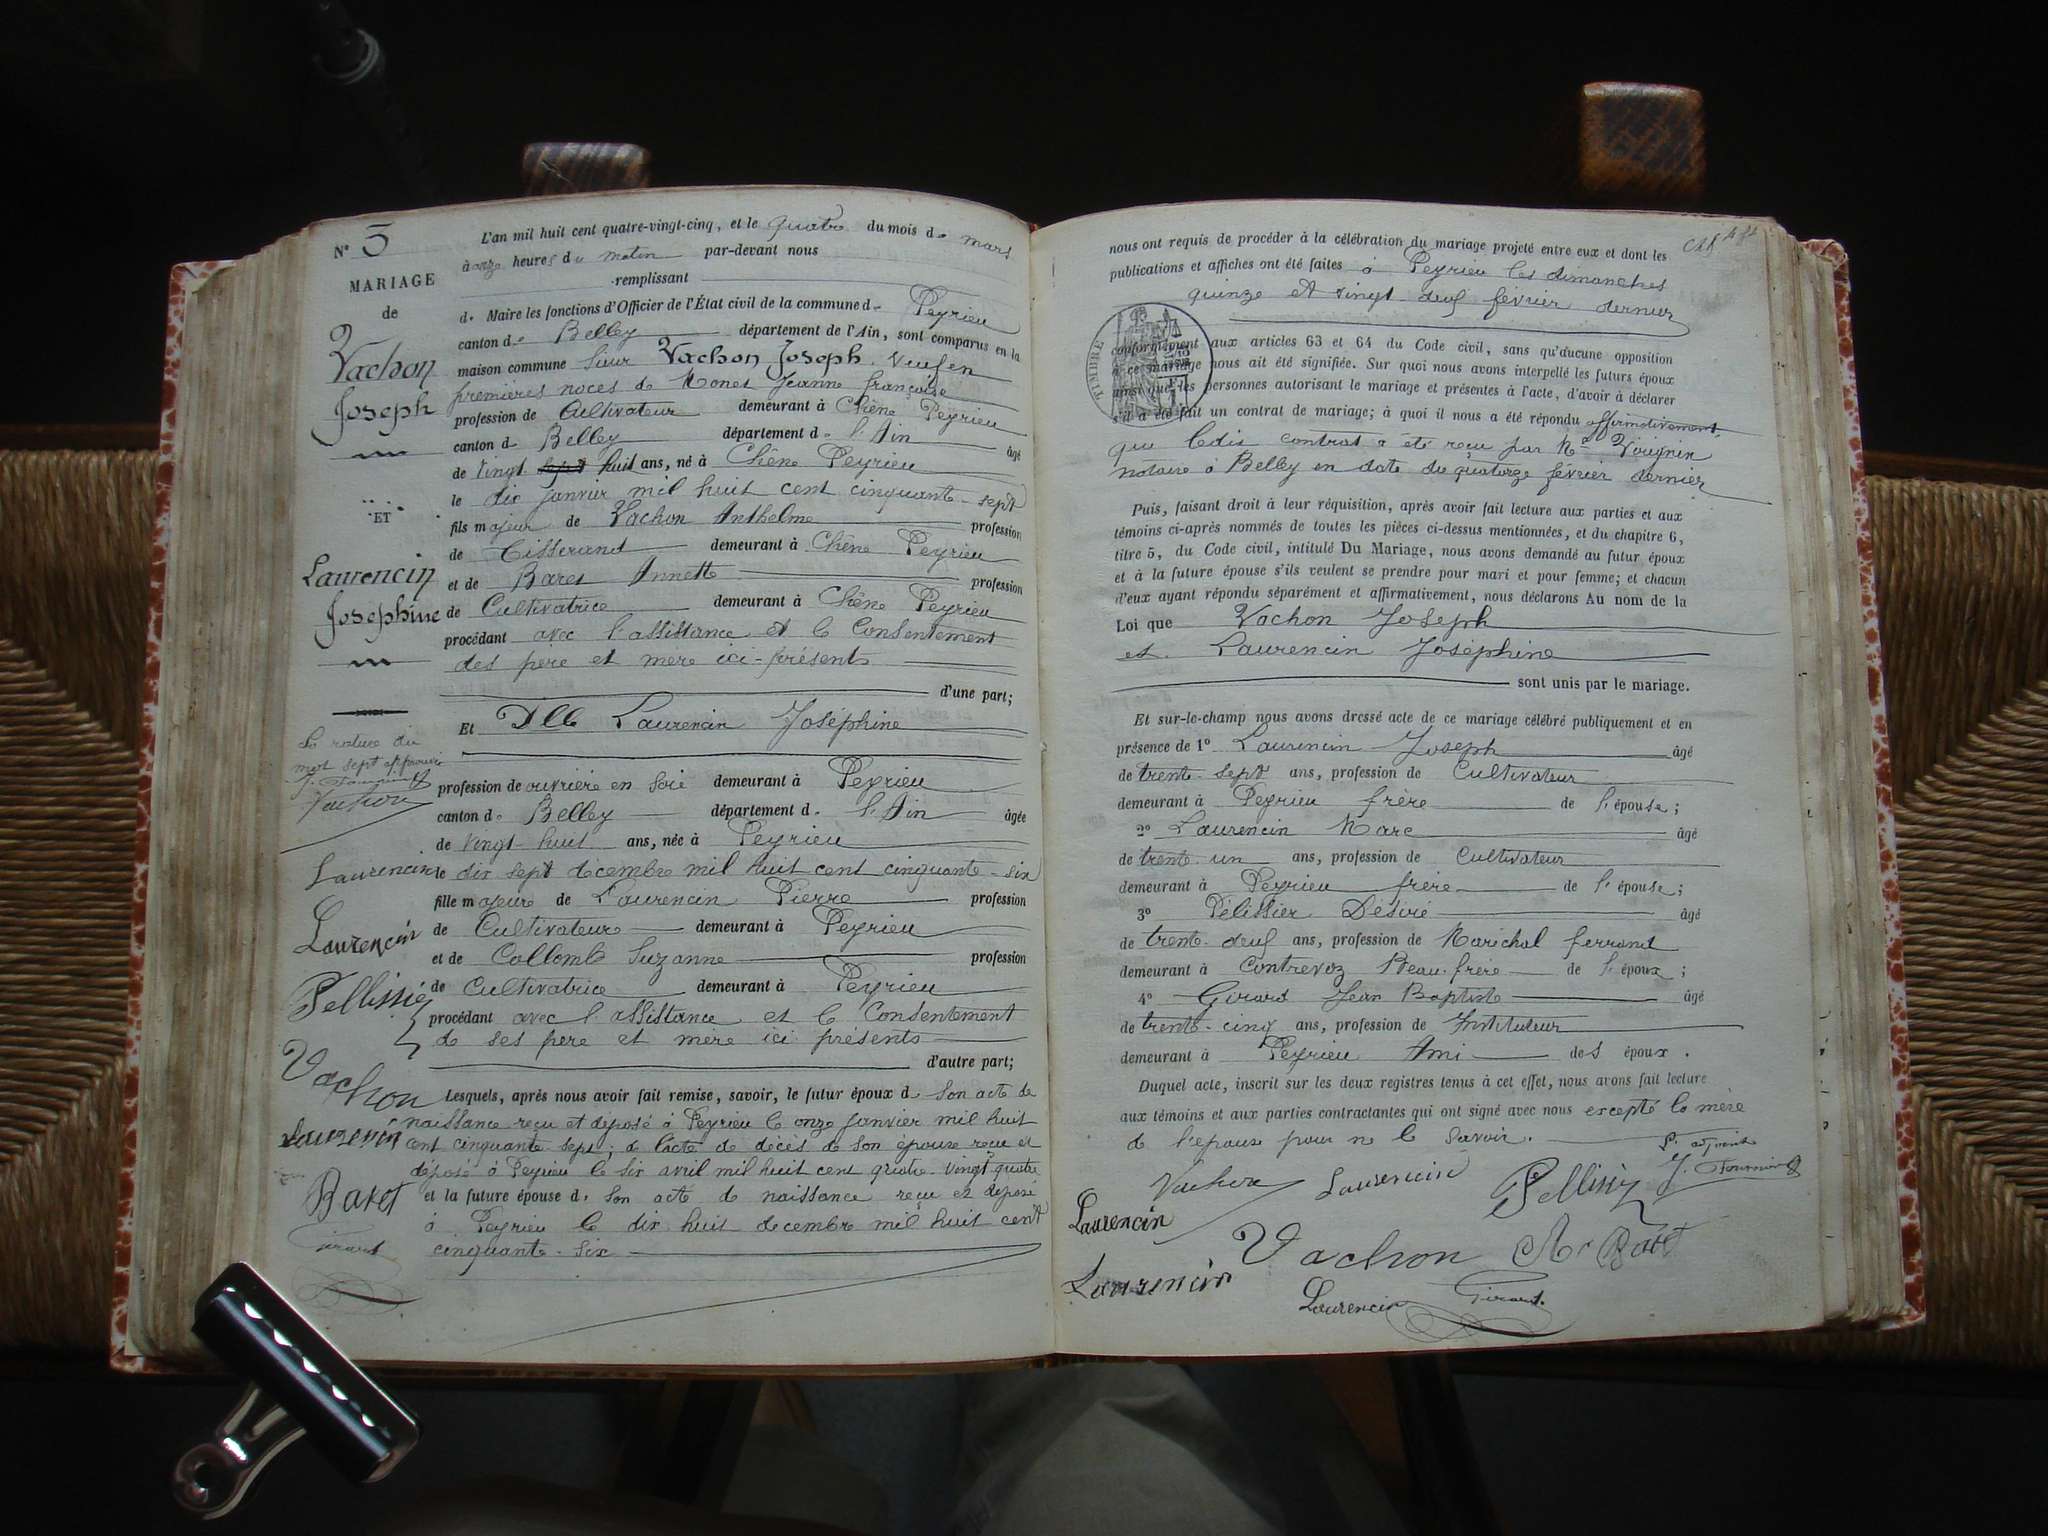 N° 3
MARIAGE
de
Vachon
Joseph
ET
Laurencin
Josephine
La rature du
mot sept approuvée
J. Fournier
Vachon
Laurencin
Laurencin
Pellissier
Vachon
Laurencin
Baret
Girard
L'an mil huit cent quatre-vingt-cinq, et le quatre du mois de mars
à onze heures du matin par-devant nous
remplissant
de Maire les fonctions d'Officier de l'État civil de la commune de Peyrieu
canton de Belley département de l'Ain, sont comparus en la
maison commune Sieur Vachon Joseph veuf en
premières noces de Monet Jeanne françoise
profession de Cultivateur demeurant à Chêne Peyrieu
canton de Belley département de l'Ain âgé
de vingt sept huit ans, né à Chêne Peyrieu
le dix janvier mil huit cent cinquante-sept
fils majeur de Vachon Anthelme profession
de Tisserand demeurant à Chêne Peyrieu
et de Baret Annette profession
de Cultivatrice demeurant à Chêne Peyrieu
procédant avec l'assistance et le Consentement
des père et mere ici-présents
d'une part;
Et Dlle Laurencin Joséphine
profession de ouvrière en soie demeurant à Peyrieu
canton de Belley département de l'Ain âgée
de vingt-huit ans, née à Peyrieu
le dix sept decembre mil huit cent cinquante-six
fille majeure de Laurencin Pierre profession
de Cultivateur demeurant à Peyrieu
et de Collomb Suzanne profession
de Cultivatrice demeurant à Peyrieu
procédant avec l'assistance et le Consentement
de ses pere et mere ici présents
d'autre part;
Lesquels, après nous avoir fait remise, savoir, le futur époux de son acte de
naissance reçu et déposé à Peyrieu le onze janvier mil huit
cent cinquante sept; de l'acte de décès de son épouse reçu et
déposé à Peyrieu le six avril mil huit cent quatre-vingt quatre
et la future épouse de son acte de naissance reçu et déposé
à Peyrieu le dix huit decembre mil huit cent
cinquante-six
nous ont requis de procéder à la célébration du mariage projeté entre eux et dont les
publications et affiches ont été faites à Peyrieu les dimanches
quinze et vingt-deux février dernier
TIMBRE
conformément aux articles 63 et 64 du Code civil, sans qu'aucune opposition
à ce mariage nous ait été signifiée. Sur quoi nous avons interpellé les futurs époux
ainsi que les personnes autorisant le mariage et présentes à l'acte, d'avoir à déclarer
s'il a été fait un contrat de mariage; à quoi il nous a été répondu affirmativement
que ledit contrat a été reçu par Me
notaire à Belley en date du quatorze février dernier
Puis, faisant droit à leur réquisition, après avoir fait lecture aux parties et aux
témoins ci-après nommés de toutes les pièces ci-dessus mentionnées, et du chapitre 6,
titre 5, du Code civil, intitulé Du Mariage, nous avons demandé au futur époux
et à la future épouse s'ils veulent se prendre pour mari et pour femme; et chacun
d'eux ayant répondu séparément et affirmativement, nous déclarons Au nom de la
Loi que Vachon Joseph
et Laurencin Joséphine
sont unis par le mariage.
Et sur-le-champ nous avons dressé acte de ce mariage célébré publiquement et en
présence de 1° Laurencin Joseph âgé
de trente-sept ans, profession de Cultivateur
demeurant à Peyrieu frère de l'épouse;
2° Laurencin Marc âgé
de trente-un ans, profession de Cultivateur
demeurant à Peyrieu frère de l'épouse;
3° Pélissier Désiré âgé
de trente-deux ans, profession de Maréchal ferrand
demeurant à Contrevoz Beau-frère de l'époux;
4° Girard Jean Baptiste âgé
de trente-cinq ans, profession de Instituteur
demeurant à Peyrieu Ami des époux.
Duquel acte, inscrit sur les deux registres tenus à cet effet, nous avons fait lecture
aux témoins et aux parties contractantes qui ont signé avec nous excepté la mère
de l'épouse pour ne le savoir.
adjoint
J. Fournier
Vachon Laurencin Pellissier
Laurencin
Vachon Baret
Laurencin Laurencin Girard